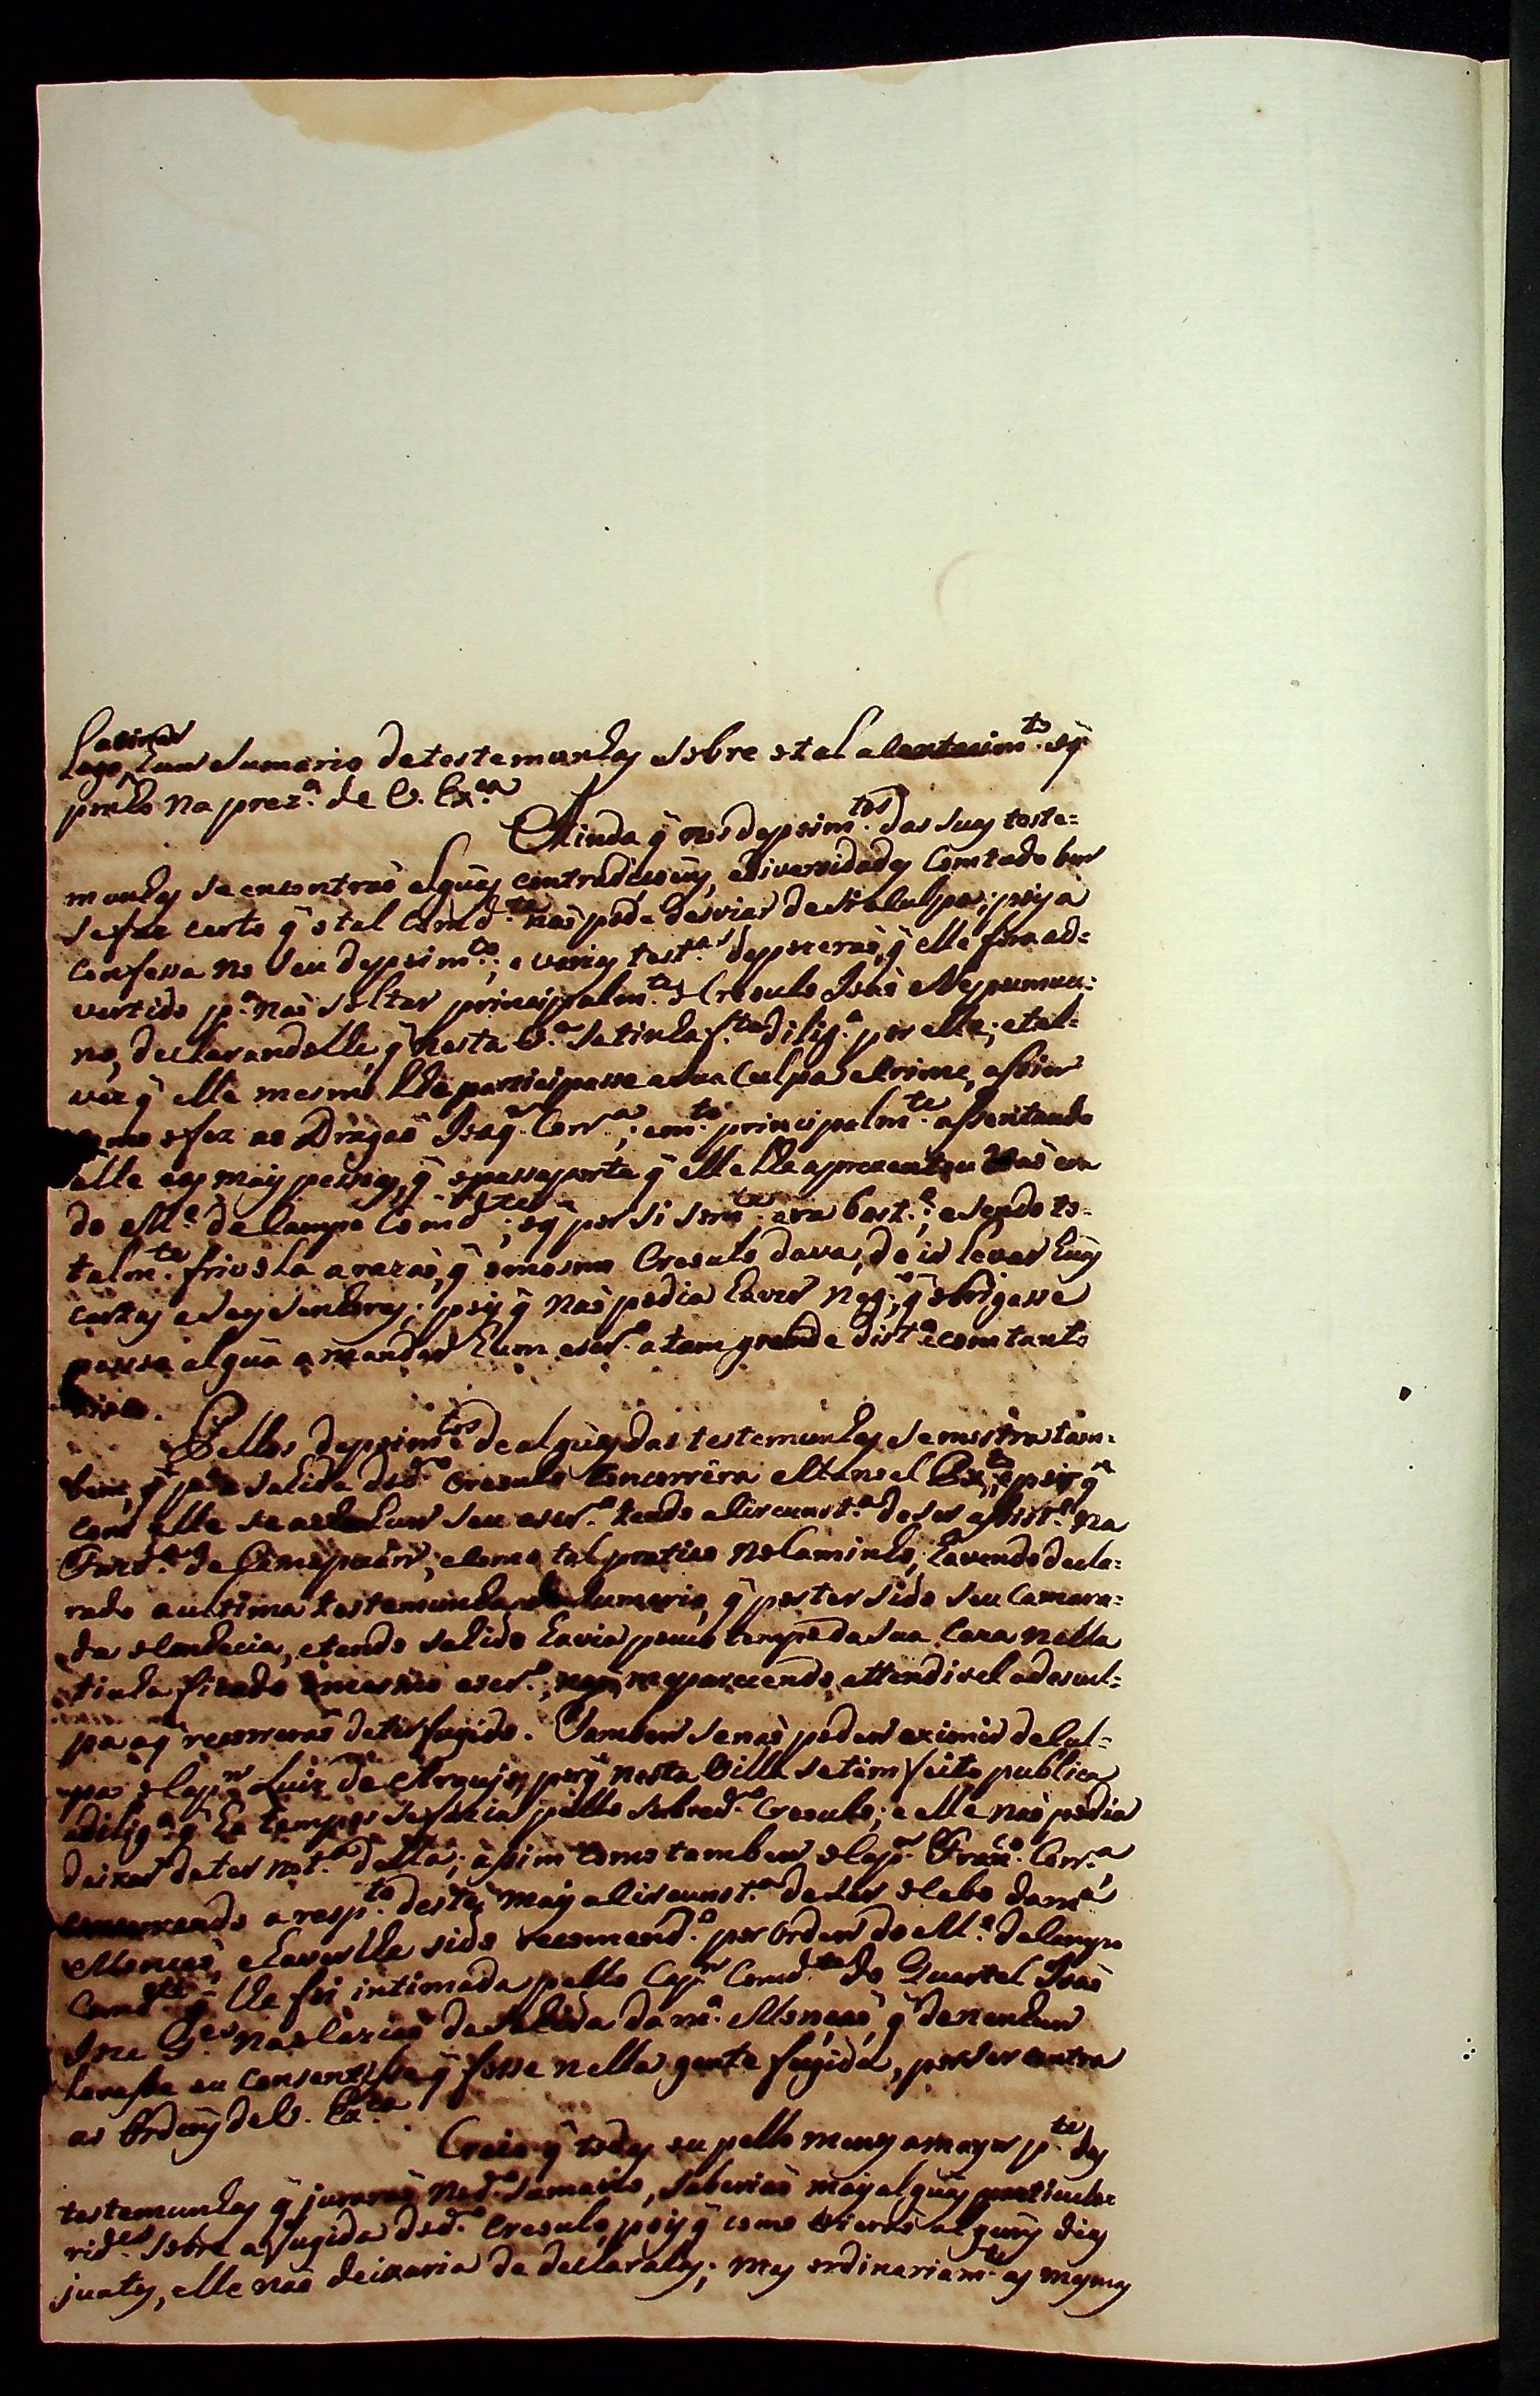 Logo hum Sumario de testemunhas sobre o tal acontecim.to, o q̃
ponho na prez.ça de V. Ex.ca
Ainda q̃ nos depoim.tos das suas teste=
munhas se encontraõ alguãs contradicoens, e diversidades, Comtudo bem
se faz certo q̃ o tal Comd.te naõ pode desviar de si a Culpa; pois já
confessa no seu depoim.to, e varias test.as deppoceraõ, q̃ elle fora ad=
vertido p.a naõ soltar principalm.te o Creoulo Joaõ Nepumuce=
no, declarandolhe, q̃ nesta V.a se tinha f.to dilig.a por elle; e tal=
vez q̃ elle mesmo lhe participasse a sua Culpa e Crime, assim
como o fez ao Dragaõ Joaq.m Corr.a; e m.to principalm.te assentando
elle e as mais pessoas, q̃ o passaporte q̃ elle lhe aprezentou naõ era
do M.e de Campo Comd.te; e q̃ por si som.te era bast.e; e sendo to=
talm.te frivola a razaõ, q̃ o mesmo Creoulo dava, de ir levar huãs
cartas a seus Senhores; pois q̃ naõ podia haver neg.o, q̃ obrigasse
pessoa alguã a mandar hum escr.o a tam grande dist.a e com tanto
risco.
Pellos depoim.tos de alguãs das testemunhas se mostra tam=
bem, q̃ p.a a sahida do d.o Creoulo Concorrêra Manoel , pois q̃
com elle se achaha hum seu escr.o tendo a Circunst.a de ser assist.e na
Fazd.a de , e como tal pratico no Caminho, havendo decla=
rado a ultima testemunha do Sumario, q̃ por ter sido seu Camara=
da o Conhecia, e tendo sahido havia pouco tempo da sua Caza nella
tinha ficado o mesmo escr.o; naõ me parecendo attendivel a descul=
pa a q̃ recorreraõ de ter fugido. Tambem se naõ podem eximir de Cul=
pa o Cap.m Luiz de Araujo, por q̃ nesta Villa se tem feito publica
a dilig.a q̃ ha tempos se fazia pello sobred.o Creoulo; e elle naõ podia
deixar de ter not.a della; assim como tambem o Cap.m Fran.co Corr.a,
concorrendo a resp.to deste mais a Circunst.a de ser o Cabo da m.a
Monçaõ, e haverlhe sido recomend.o por ordem do M.e de Campo
Comd.te q̃ lhe foi intimada pello Cap.m Comd.te do Quartel Joaõ
Joze G.es na ocaziaõ da sahida da m.a Monçaõ, q̃ de nenhum
levasse ou consentisse q̃ fosse nella gente fugida, por ser contra
as Ordens de V. Ex.ca
Creio q̃ todas ou pello menos a mayor p.te das
testemunhas q̃ juraraõ no d.o Sumario, saberiaõ mais alguãs particula=
rid.es sobre a fugida do d.o Creoulo, pois q̃ como vieraõ alguns dias
juntos, elle naõ deixaria de declaralas; mas ordinariam.te os mesmos